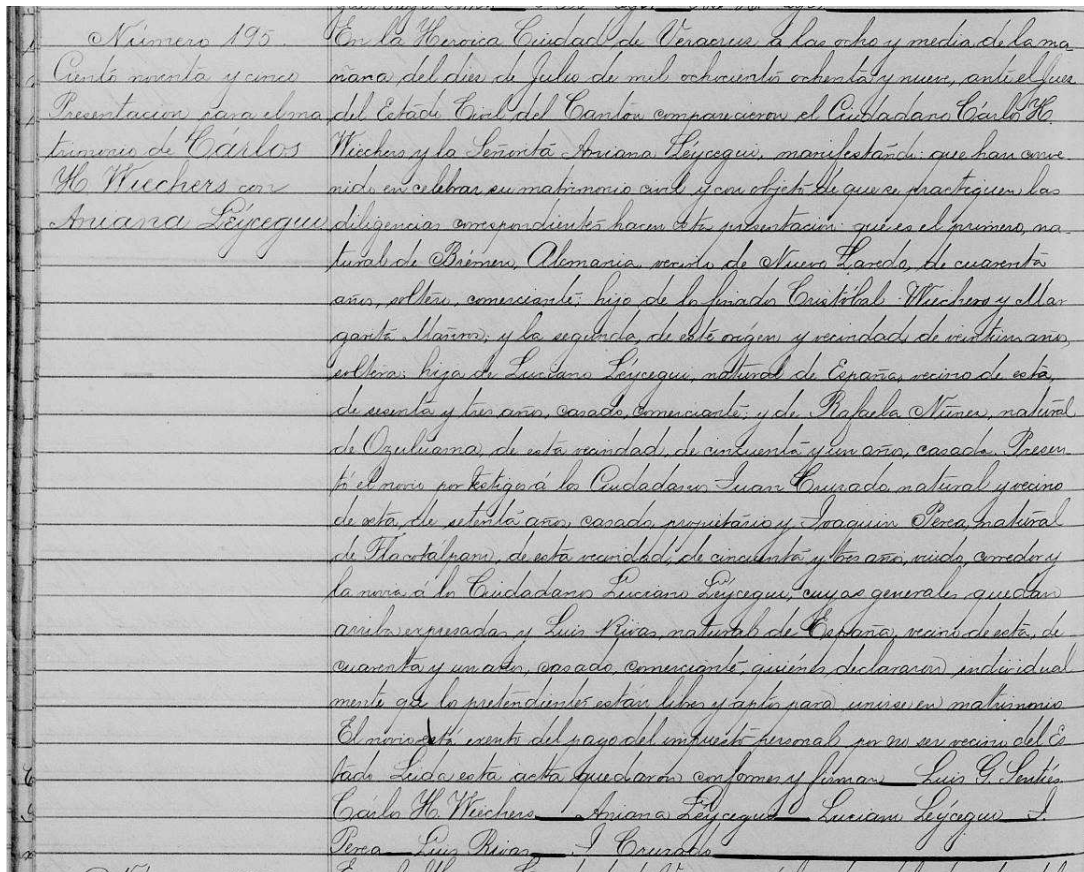 Número 195.
Ciento noventa y cinco
Presentación para el ma
trimonio de Cárlos
H. Wiechers con
Aniana Léycegui
En la Heroica Ciudad de Veracruz a las ocho y media de la ma_
ñana del dies de Julio de mil ochocientos ochenta y nueve, ante el Juez
del Estado Civil del Cantón comparecieron el Ciudadano Cárlos H.
Wiechers y la Señorita Aniana Léycegui, manifestando: que han conve
nido en celebrar su matrimonio civil y con objeto de que se practiquen las
diligencias correspondientes hacen esta presentación: que es el primero, na_
tural de Brémen, Alemania vecino de Nuevo Laredo, de cuarenta
años, soltero, comerciante, hijo de los finados Cristóbal Wiechers y Mar
garita; y la segunda, de este orígen y vecindad de veintiun años,
soltera, hija de Luciano Léycegui, natural de España, vecino de esta,
de sesenta y tres años, casado, comerciante, y de Rafaela Núñez, natural
de Ozuluama, de esta vecindad, de cincuenta y un años, casada. Presen
tó el novio por testigos á los Ciudadanos Juan Cruzado natural y vecino
de esta, de setenta años casado, propietario y Joaquin Perea, natural
de Tlacotálpam, de esta vecindad, de cincuenta y tres años, viudo, corredor y
la novia á los Ciudadanos Luciano Léycegui, cuyas generales quedan
arriba expresadas y Luis Rivas, natural de España, vecino de esta, de
cuarenta y un años, casado, comerciante, quiénes declararon individual
mente que los pretendientes están libres y aptos para unirse en matrimonio
El novio está exento del pago del impuesto personal por no ser vecino del Es
tado. Leida esta acta quedaron conformes y firman _ Luis G. Sentíes
Carlos H. Wiechers _ Aniana Léycegui _ Luciano Léycegui _ J.
Perea _ Luis Rivas _ J. Cruzado